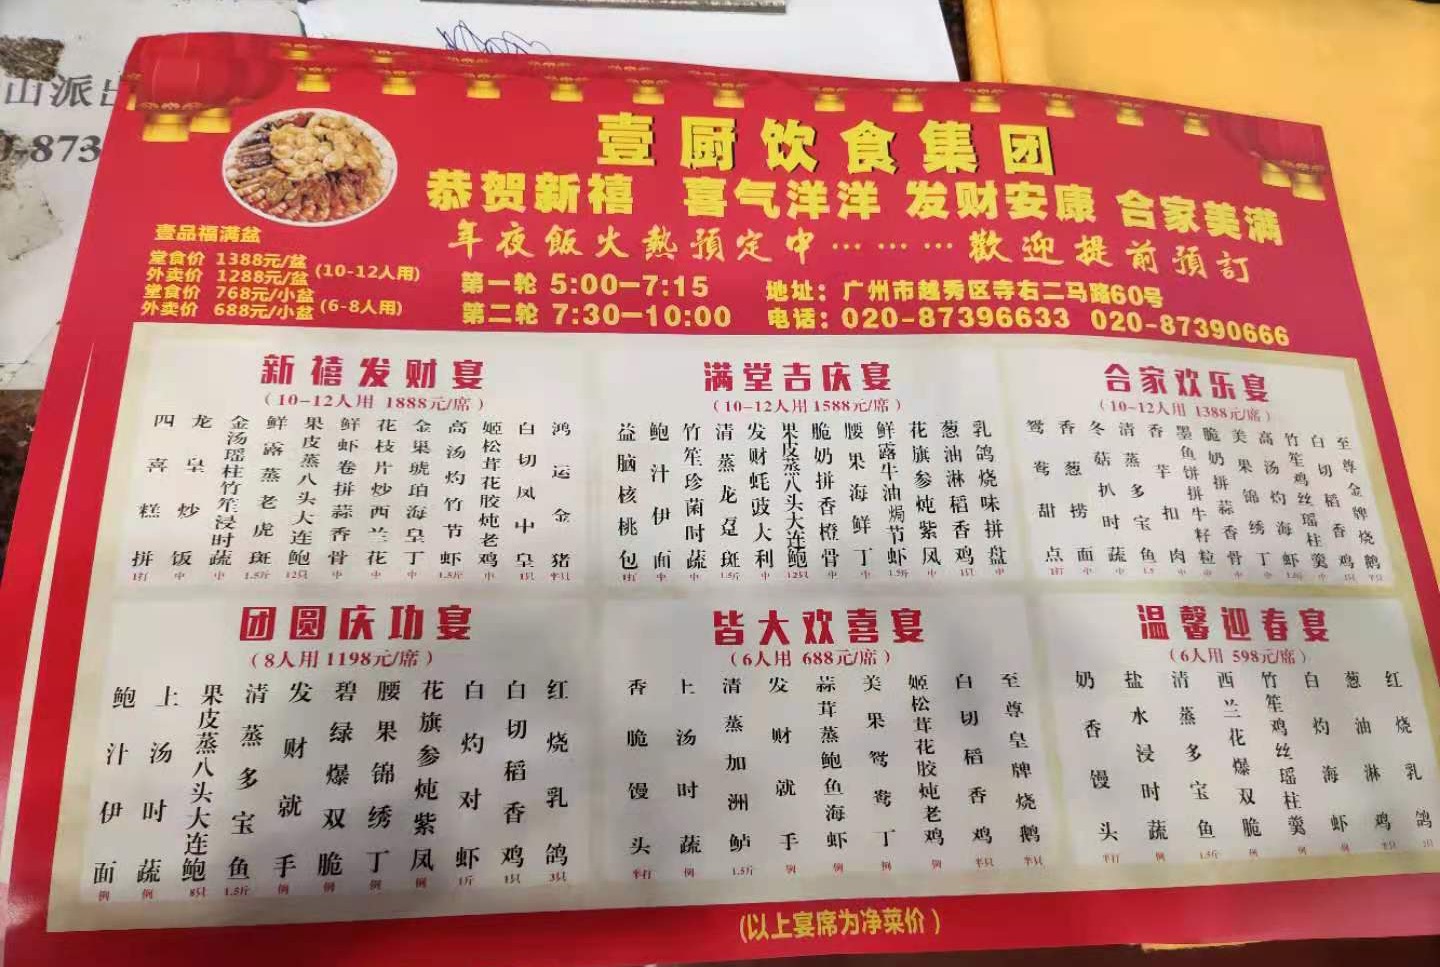 山派出
873
壹厨饮食集团
恭贺新禧 喜气洋洋 发财安康 合家美满
年夜飯火熱預定中………歡迎提前預訂
壹品福满盆
堂食价 1388元/盆
外卖价 1288元/盆 (10-12人用)
堂食价 768元/小盆
外卖价 688元/小盆 (6-8人用)
第一轮 5:00—7:15
第二轮 7:30—10:00
地址：广州市越秀区寺右二马路60号
电话：020-87396633 020-87390666
新禧发财宴
(10-12人用 1888元/席)
鸿运金猪 半只
白切凤中皇 1只
姬松茸花胶炖老鸡 中
高汤灼竹节虾 1.5斤
金果琥珀海皇丁 中
花枝片炒西兰花 中
鲜虾卷拼蒜香骨 中
果皮蒸八头大连鲍 12只
鲜露蒸老虎斑 1.5斤
金汤瑶柱竹笙浸时蔬 中
龙皇炒饭 中
四喜糕拼 1打
满堂吉庆宴
(10-12人用 1588元/席)
乳鸽烧味拼盘 中
葱油淋稻香鸡 1只
花旗参炖紫凤 中
鲜露牛油焗节虾 1.5斤
腰果海鲜丁 中
脆奶拼香橙骨 中
果皮蒸八头大连鲍 12只
发财蚝豉大利 中
清蒸龙趸斑 1.5斤
竹笙珍菌时蔬 中
鲍汁伊面 中
益脑核桃包 1打
合家欢乐宴
(10-12人用 1388元/席)
至尊金牌烧鹅 半只
白切稻香鸡 1只
竹笙鸡丝瑶柱羹 中
高汤灼海虾
美果锦绣丁 中
脆奶拼蒜香骨 中
墨鱼饼拼牛籽粒 中
香芋扣肉 中
清蒸多宝鱼 1.5
冬菇扒时蔬 中
香葱捞面 中
鸳鸯甜点 1打
团圆庆功宴
(8人用 1198元/席)
红烧乳鸽 3只
白切稻香鸡 1只
白灼对虾 1斤
花旗参炖紫凤 例
腰果锦绣丁 例
碧绿爆双脆 例
发财就手 例
清蒸多宝鱼 1.5斤
果皮蒸八头大连鲍 8只
上汤时蔬 例
鲍汁伊面 例
皆大欢喜宴
(6人用 688元/席)
至尊皇牌烧鹅 半只
白切稻香鸡 半只
姬松茸花胶炖老鸡 例
美果鸳鸯丁 例
蒜茸蒸鲍鱼海虾 例
发财就手 例
清蒸加洲鲈 1.5斤
上汤时蔬 例
香脆馒头 半打
温馨迎春宴
(6人用 598元/席)
红烧乳鸽
葱油淋鸡 半只
白灼海虾 例
竹笙鸡丝瑶柱羹 例
西兰花爆双脆 例
清蒸多宝鱼 1.5斤
盐水浸时蔬 例
奶香馒头 半打
(以上宴席为净菜价)